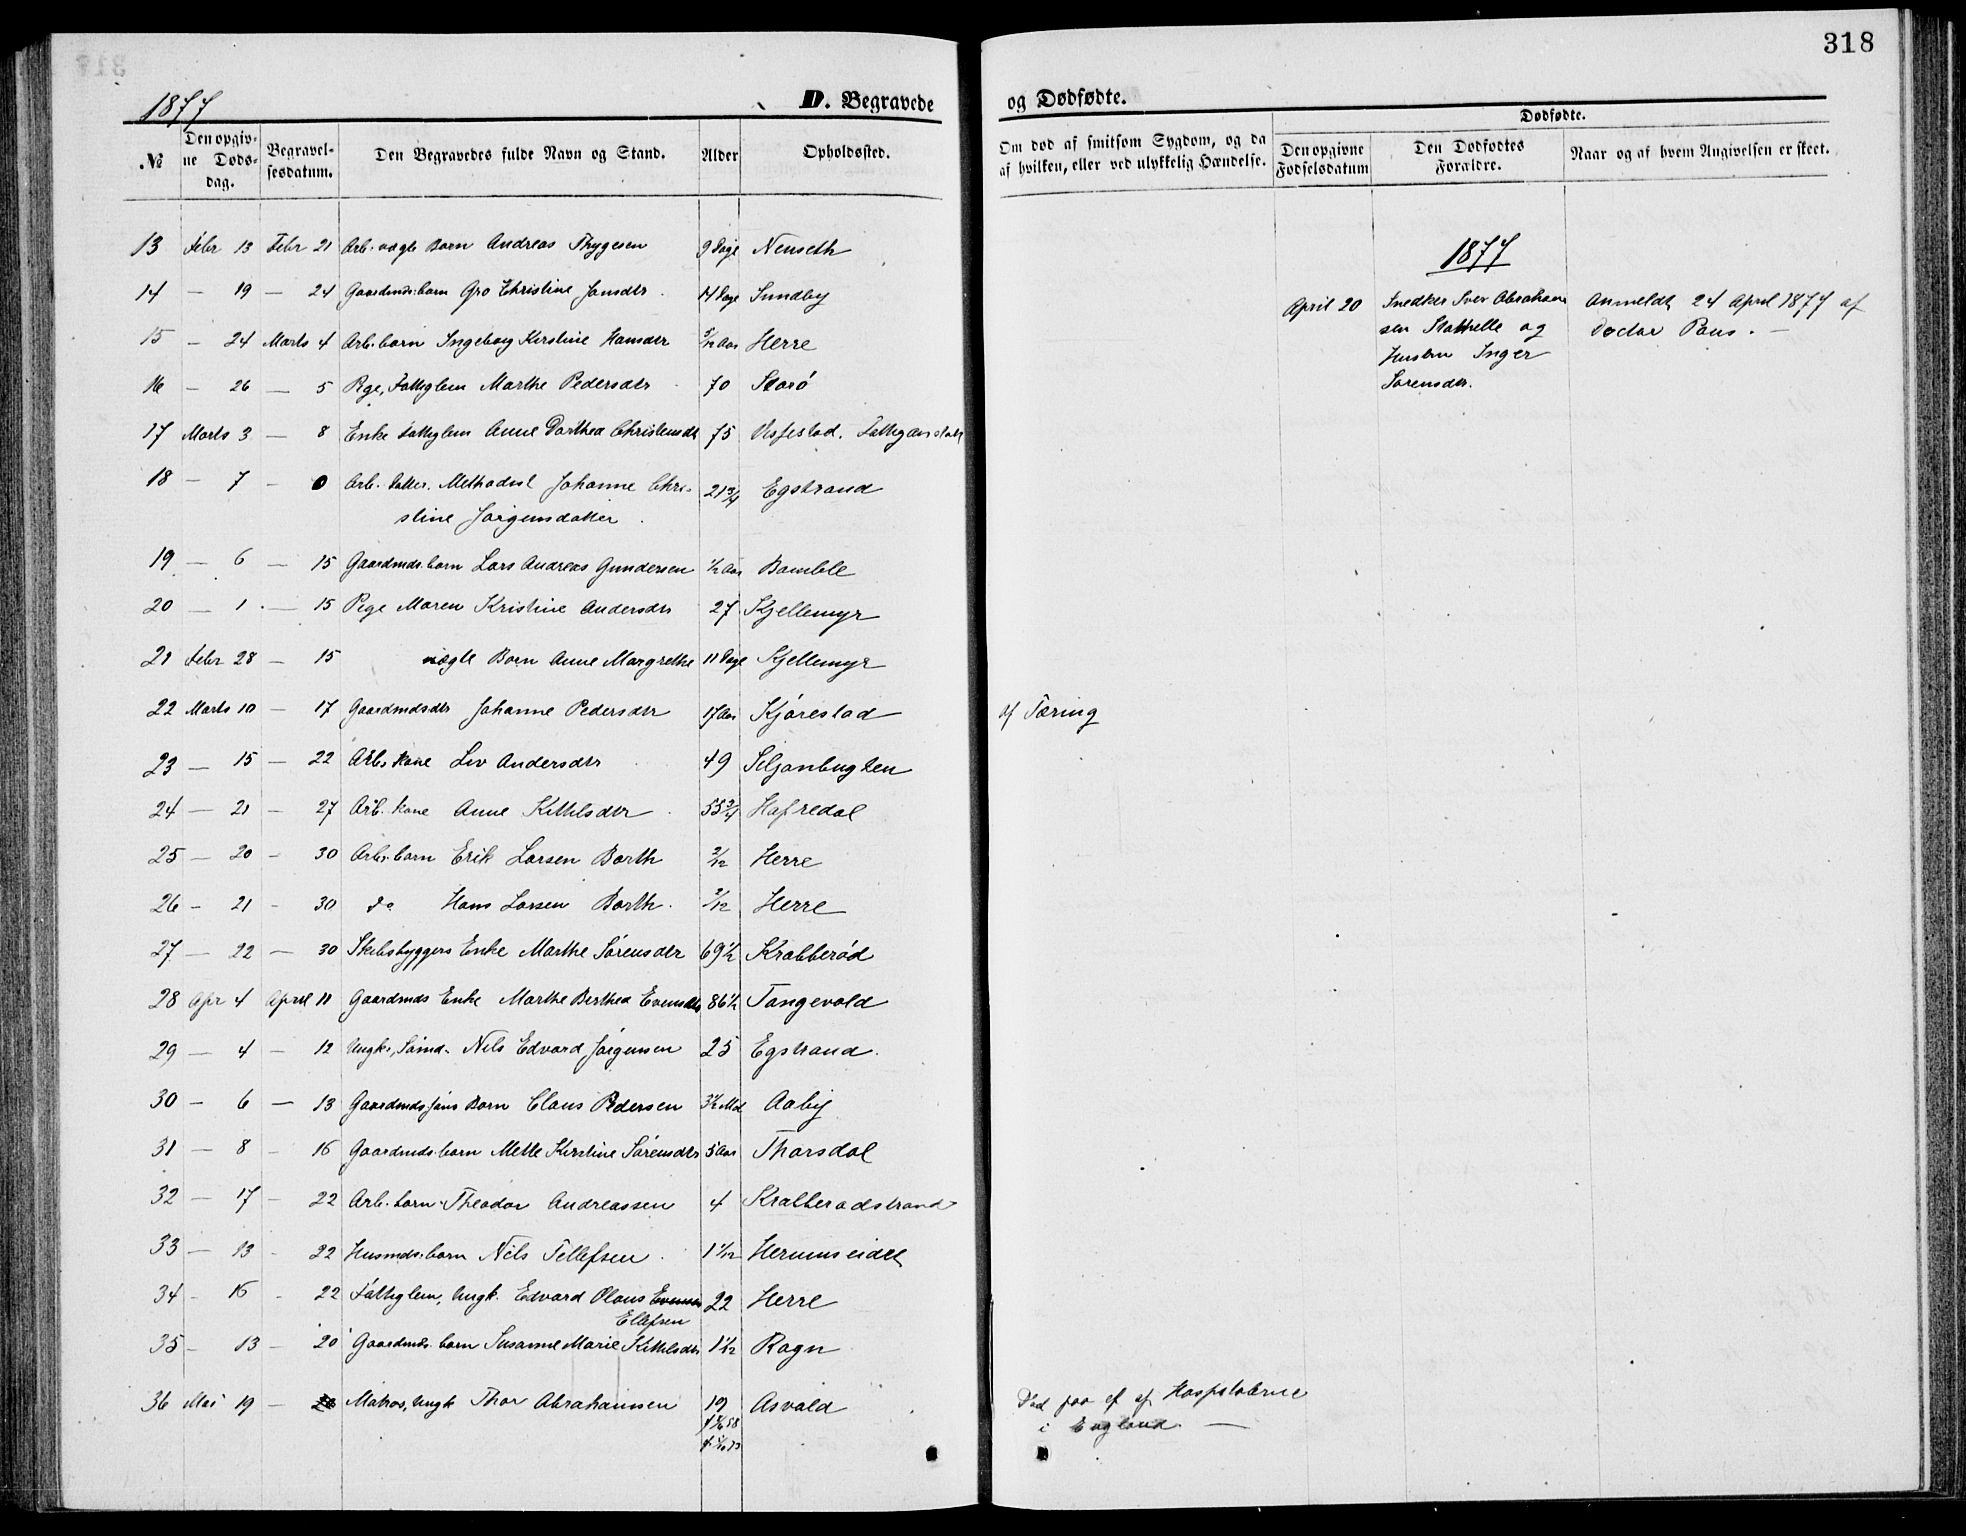 318
1877
D. Begravede og Dødfødte.
№ | Den opgivne Dødsdag. | Begravelsesdatum. | Den Begravedes fulde Navn og Stand. | Alder | Opholdssted. | Om død af smitsom Sygdom, og da af hvilken, eller ved ulykkelig Hændelse. | Dødfødte. | Den opgivne Fødselsdatum | Den Dødfødtes Forældre. | Naar og af hvem Angivelsen er skeet.
13 Febr 13 Febr 21 Arb. uægte Barn Andreas Thygesen 9 Dage Nenseth
14 — 19 — 24 Gaardmds. barn Gro Christine Jansdtr 14 Dage Sundby
15 — 24 Marts 4 Arb. barn Ingeborg Kirstine Hansdtr 3/12 Aar Herre
16 — 26 — 5 Pge, Fattiglem Marthe Pedersdtr 70 Starø
17 Marts 3 — 8 Enke Fattiglem Anne Dorthea Christensdtr 75 Vissestad.
18 — 7 — Arb. datter. Methodist Johanne Chri-
stine Jørgensdatter 21 3/4 Egstrand
19 — 6 — 15 Gaardmds. barn Lars Andreas Gundersen 1/2 Aar Bamble
20 — 1 — 15 Pige Maren Kristine Andersdtr 27 Kjellemyr
21 Febr 28 — 15 uægte Barn Anne Margrethe 11 Dage Kjellemyr
22 Marts 10 — 17 Gaardmdsdtr Johanne Pedersdtr 17 Aar Kjørestad af Tæring
23 — 15 — 22 Arb. kone Liv Andersdtr 49 Siljanbugten
24 — 21 — 27 Arb. kone Anne Kittilsdtr 53 3/4 Hafredal
25 — 20 — 30 Arb. barn Erik Larsen Barth 2/12 Herre
26 — 21 — 30 do Hans Larsen Barth 2/12 Herre
27 — 22 — 30 Skibsbyggers Enke Marthe Sørensdtr 69 1/2 Krabberød
28 Apr 4 April 11 Gaardmds Enke Marthe Berthea Evensdtr 86 1/2 Tangevald
29 — 4 — 12 Ungk., Sømd. Nils Edvard Jørgensen 25 Egstrand.
30 — 6 — 13 Gaardmds Barn Claus Pedersen 3 1/2 Md Aaby
31 — 8 — 16 Gaardmds. barn Mette Kirstine Sørensdtr 5 Aar Thorsdal
32 — 17 — 22 Arb. barn Theodor Andreassen 4 Krabberødstrand
33 — 13 — 22 Husmds. barn Nils Tellefsen 1 1/12 Herumseidet
34 — 16 — 22 Fattiglem, Ungk. Edvard Olaus 22 Herre
Elefsen
35 — 13 — 20 Gaardmds. barn Susanne Marie Kittilsdtr 1 1/12 Rogn
36 Mai 19 — Matros, Ungk Thor Abrahamsen 19 Asvald
Død paa et af Hospitalerne
i England —
1877
April 20 Snedker Siver Abraham
sen Stathelle og
Hustru Inger
Sørensdtr.
Anmeldt 24 April 1877 af
Doctor Paus. —